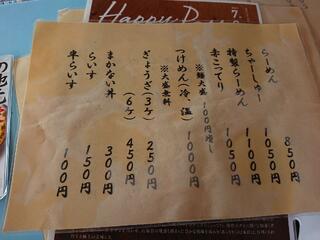 Happy
7.
らーめん 850円
ちゃーしゅー 1050円
特製らーめん 1100円
赤こってり 1050円
※麺大盛 100円増し
つけめん(冷、温 1000円
※大盛無料
ぎょうざ(3ケ) 250円
(6ケ) 450円
まかない丼 300円
らいす 150円
半らいす 100円